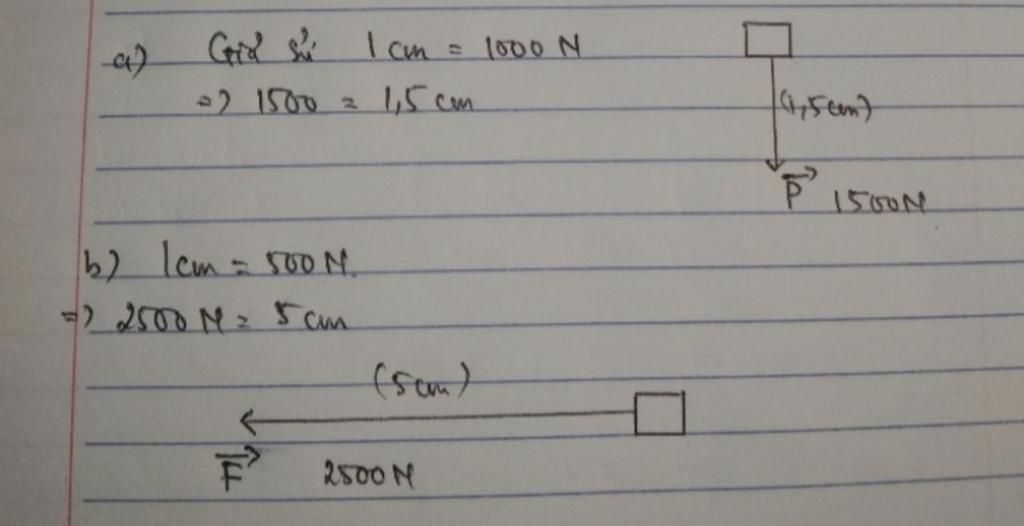 a) Giả sử 1 cm = 1000 N
=> 1500 = 1,5 cm
(1,5 cm)
P 1500N
b) 1cm = 500 N.
=> 2500 N = 5 cm
(5cm)
F 2500N